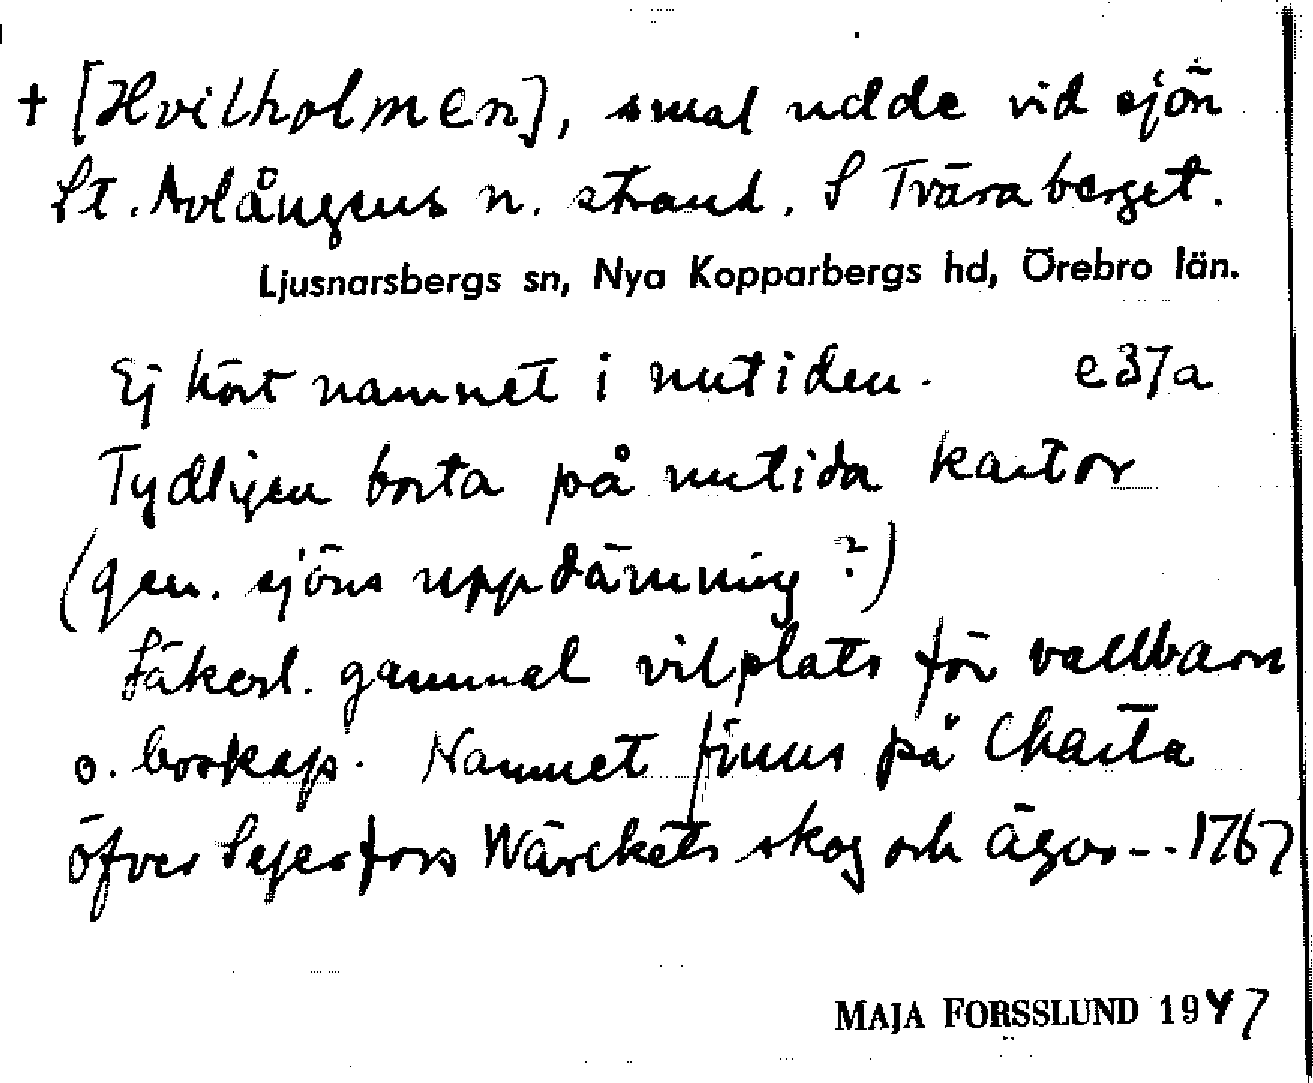 + [Hvilholmen], smal udde vid sjön
St. Avlångens n. strand. S Tväraberget.
Ljusnarsbergs sn, Nya Kopparbergs hd, Örebro län.
Ej hört namnet i nutiden. e37a
Tydligen borta på nutida kartor
(gen. sjöns uppdämning?)
Säkerl. gammal vilplats för vallbarn
o. boskap. Namnet finns på Charta
öfver Sejersfors Wärckets skog och ägor -- 1767
MAJA FORSSLUND 1947